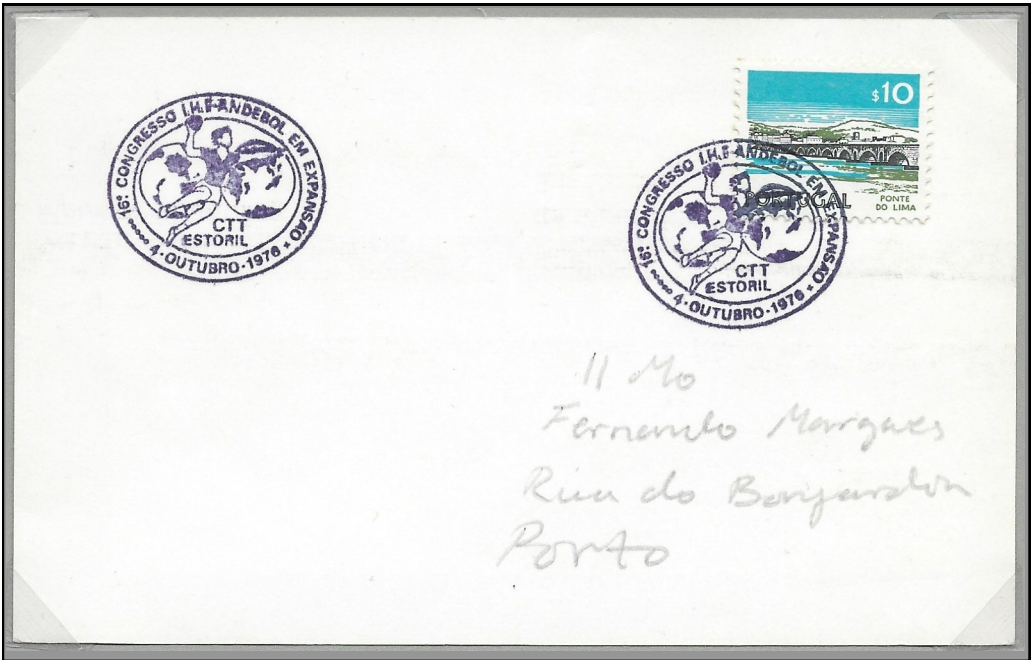 16º CONGRESSO I.H.F-ANDEBOL EM EXPANSAO
CTT
ESTORIL
4·OUTUBRO·1976
$10
PORTUGAL
PONTE
DO LIMA
16º CONGRESSO I.H.F-ANDEBOL EM EXPANSAO
CTT
ESTORIL
4·OUTUBRO·1976
Il Mo
Fernando Marques
Rua do Bonjardim
Porto